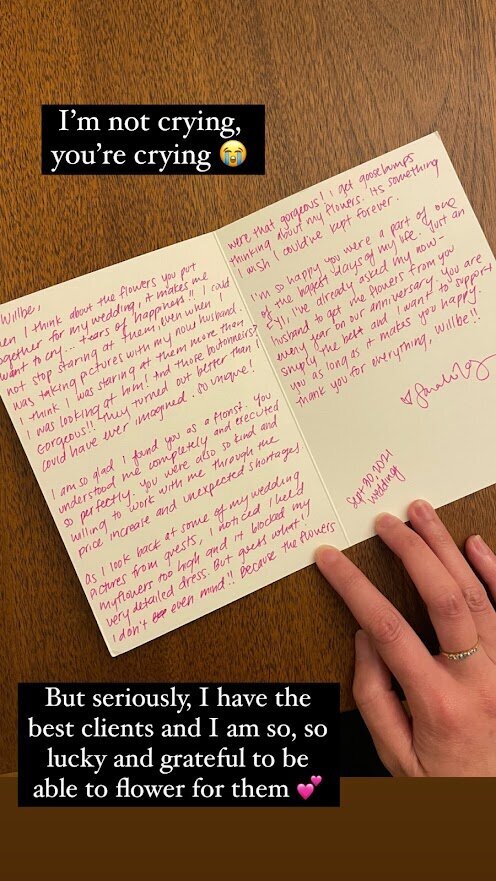 I'm not crying,
you're crying 😭
Willbe,
en I think about the flowers you put
ogether for my wedding, it makes me
want to cry... tears of happiness!! I could
not stop staring at them, even when I
was taking pictures with my now husband.
I think I was staring at them more than
I was looking at him! And those boutonnieres?
Gorgeous!! They turned out better than I
could have ever imagined. So unique!
I am so glad I found you as a florist. You
understood me completely and executed
so perfectly. You were also so kind and
willing to work with me through the
price increase and unexpected shortages.
As I look back at some of my wedding
pictures from guests, I noticed I held
my flowers too high and it blocked my
very detailed dress. But guess what?
I don't even mind!! Because the flowers
were that gorgeous! I get goosebumps
thinking about my flowers. Its something
I wish I could've kept forever.
I'm so happy you were a part of one
of the biggest days of my life. Just an
FYI, I've already asked my now-
husband to get me flowers from you
every year on our anniversary. You are
simply the best and I want to support
you as long as it makes you happy.
Thank you for everything, Willbe!!
♡
Sept. 20, 2021
wedding
But seriously, I have the
best clients and I am so, so
lucky and grateful to be
able to flower for them 💕